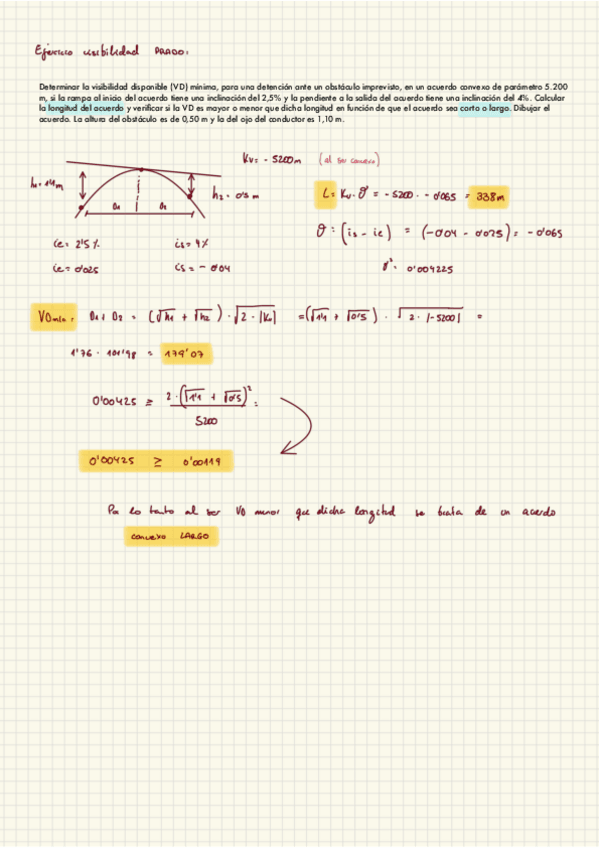 Ejercicio visibilidad PRADO:
Determinar la visibilidad disponible (VD) mínima, para una detención ante un obstáculo imprevisto, en un acuerdo convexo de parámetro 5.200
m, si la rampa al inicio del acuerdo tiene una inclinación del 2,5% y la pendiente a la salida del acuerdo tiene una inclinación del 4%. Calcular
la longitud del acuerdo y verificar si la VD es mayor o menor que dicha longitud en función de que el acuerdo sea corto o largo. Dibujar el
acuerdo. La altura del obstáculo es de 0,50 m y la del ojo del conductor es 1,10 m.
Kv = - 5200m (al ser convexo)
h1 = 1'1m
h2 = 0'5 m
D1 D2
L = Kv · θ = - 5200 · - 0'065 = 338m
θ = (is - ie) = (-0'04 - 0'025) = - 0'065
ie = 2'5% is = 4%
ie = 0'025 is = - 0'04
θ² = 0'004225
VDmin = D1 + D2 = (√h1 + √h2) · √2 · |Kv| = (√1'1 + √0'5) · √2 · |-5200| =
1'76 · 101'98 = 179'07
0'00425 ≥ 2 · (√1'1 + √0'5)² =
5200
0'00425 ≥ 0'00119
Por lo tanto al ser VD menor que dicha longitud se trata de un acuerdo
convexo LARGO